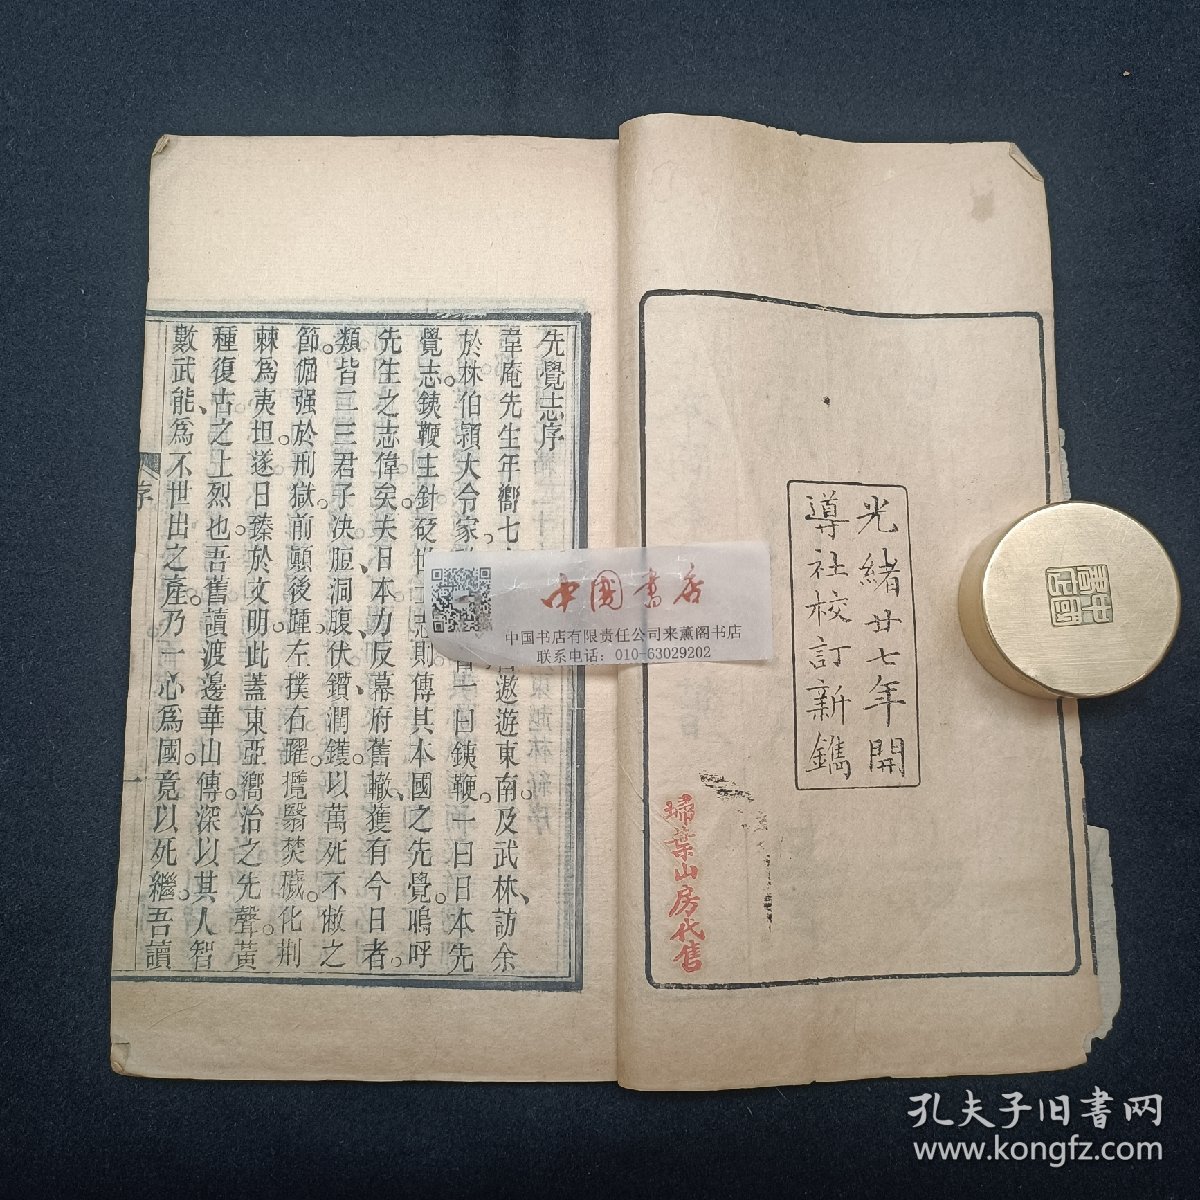 光緒廿七年開
導社校訂新鐫
埽葉山房代售
先覺志序
韋庵先生年嚮七
遨遊東南及武林、訪余
於林伯穎大令家。
一曰鉄鞭。一曰日本先
覺志。鉄鞭主針砭世
志則傳其本國之先覺。嗚呼
先生之志偉矣。夫日本力反幕府舊轍、獲有今日者。
類皆二三君子決脰洞腹、伏鑕潤鑊。以萬死不敝之
節。倔强於刑獄。前顛後踵。左撲右躍。攬翳焚穢。化荆
棘爲夷坦。遂日臻於文明。此蓋東亞嚮治之先聲。黃
種復古之士烈也。吾舊讀渡邊華山傳。深以其人智
數武能、爲不世出之產。乃一心爲國。竟以死繼。吾讀
序
一
中國書店
中国书店有限责任公司来薰阁书店
联系电话：010-63029202
中國書店
孔夫子旧书网
www.kongfz.com